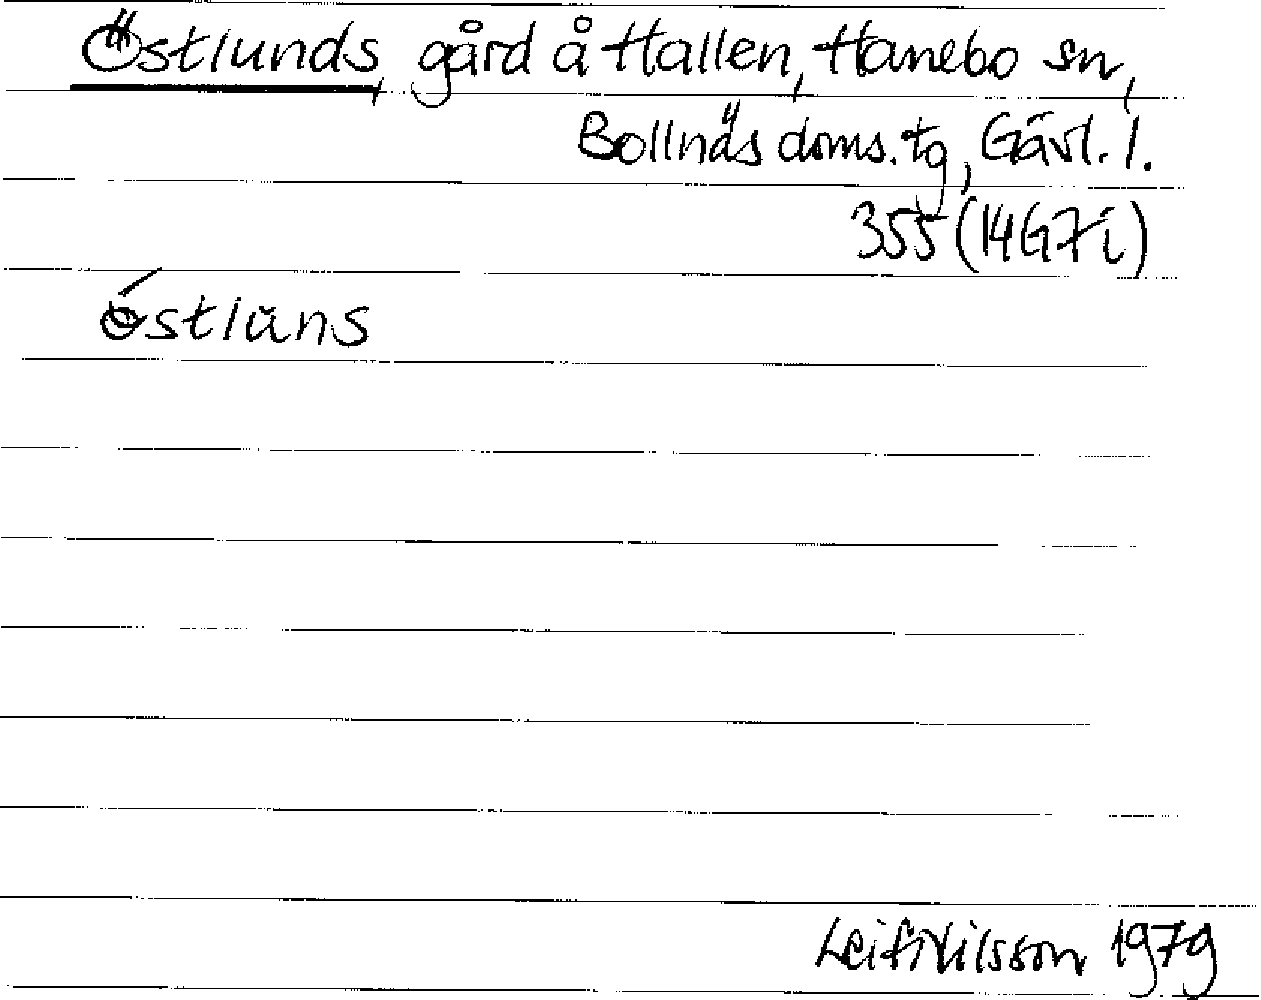 Östlunds, gård å Hallen, Hanebo sn,
Bollnäs doms. tg, Gävl. l.
355 (14G7i)
östlüns
Leif Nilsson 1979